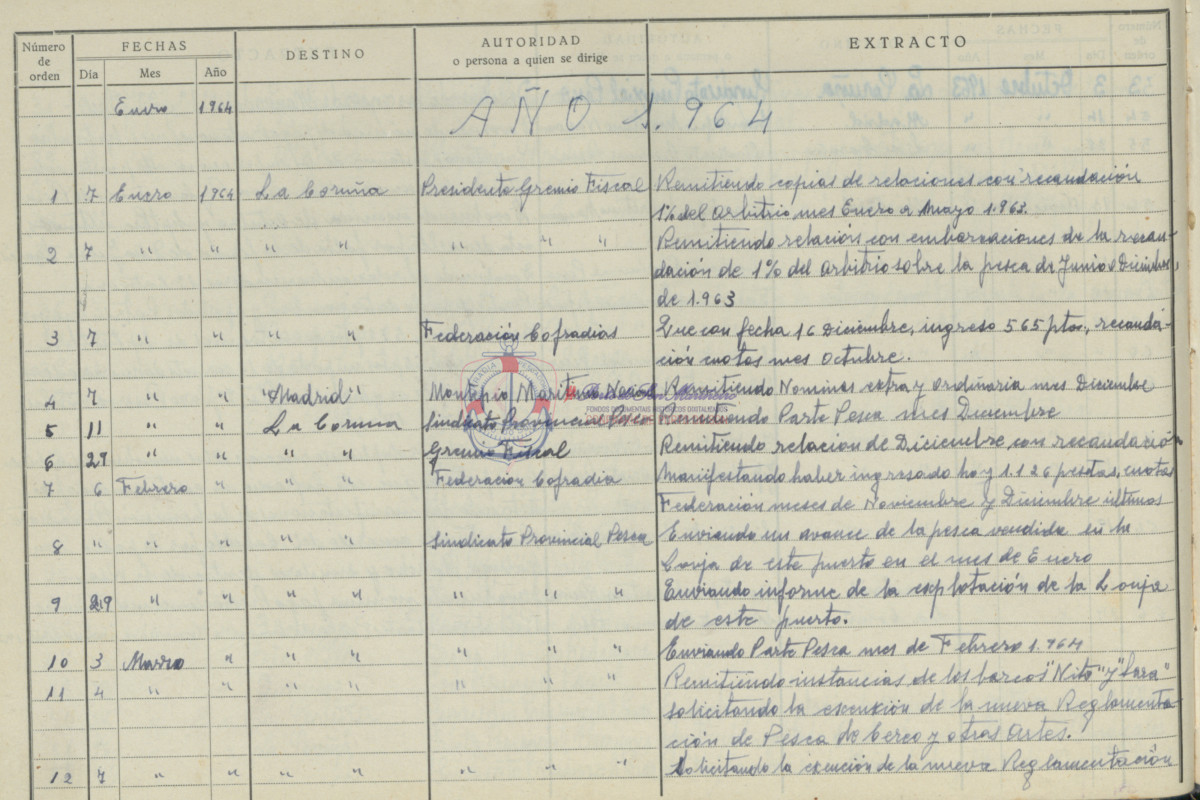 Número de orden FECHAS DESTINO AUTORIDAD o persona a quien se dirige EXTRACTO
Día Mes Año
Enero 1.964 AÑO 1.964
1 7 Enero 1964 La Coruña Presidente Gremio Fiscal Remitiendo copias de relaciones con recaudación
1% del Arbitrio mes Enero a Mayo 1.963.
2 7 " " " " " " " Remitiendo relación con embarcaciones de la recau-
dación de 1% del arbitrio sobre la pesca de Junio a Diciembre,
de 1.963
3 7 " " " " Federación Cofradias Que con fecha 16 Diciembre, ingreso 565 ptas, recauda-
ción cuotas mes Octubre.
4 7 " " "Madrid" Montepio Maritimo Nacional Remitiendo Nominas extra y Ordinaria mes Diciembre
FONDOS DOCUMENTAIS HISTÓRICOS DIGITALIZADOS
5 11 " " La Coruña Sindicato Provincial Pesca Remitiendo Parte Pesca mes Diciembre
6 29 " " " " Gremio Fiscal Remitiendo relacion de Diciembre con recaudación
7 6 Febrero " " Federacion Cofradia Manifestando haber ingresado hoy 1.126 pesetas, cuotas
Federación meses de Noviembre y Diciembre últimos
8 " " " " " Sindicato Provincial Pesca Enviando un avance de la pesca vendida en la
Lonja de este puerto en el mes de Enero
9 29 " " " " " " " Enviando informe de la explotación de la Lonja
de este puerto.
10 3 Marzo " " " " " " Enviando Parte Pesca mes de Febrero 1.964
11 4 " " " " " " " Remitiendo instancias de los barcos "Nito" y "Sara"
solicitando la excención de la nueva Reglamenta-
ción de Pesca de Cerco y otras Artes.
12 7 " " " " " " " Solicitando la exención de la nueva Reglamentación